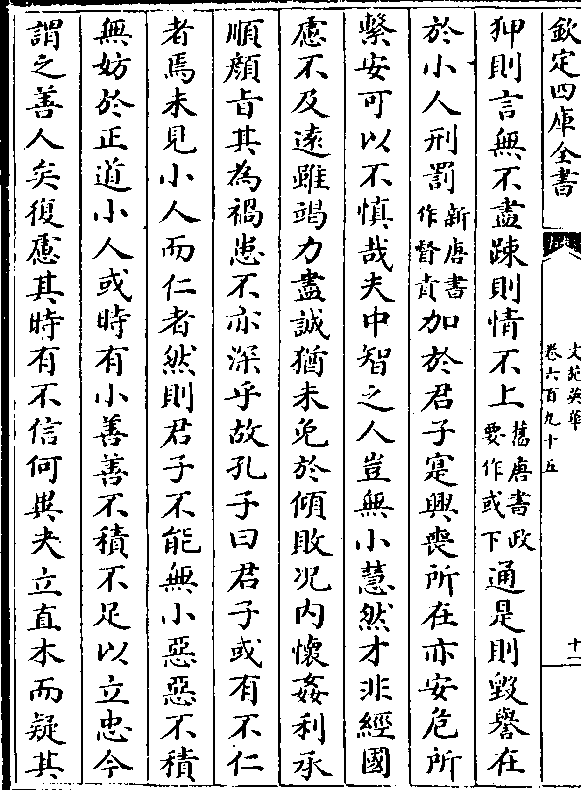 欽定四庫全書
文苑英華
卷六百九十五
十二
狎則言無不盡踈則情不上舊唐書政要作或下通是則毀譽在
於小人刑罰新唐書作督責加於君子寔興喪所在亦安危所
繫安可以不慎哉夫中智之人豈無小慧然才非經國
慮不及遠雖竭力盡誠猶未免於傾敗况内懷姦利承
順顔旨其為禍患不亦深乎故孔子曰君子或有不仁
者焉未見小人而仁者然則君子不能無小惡惡不積
無妨於正道小人或時有小善善不積不足以立忠今
謂之善人矣復慮其時有不信何異夫立直木而疑其